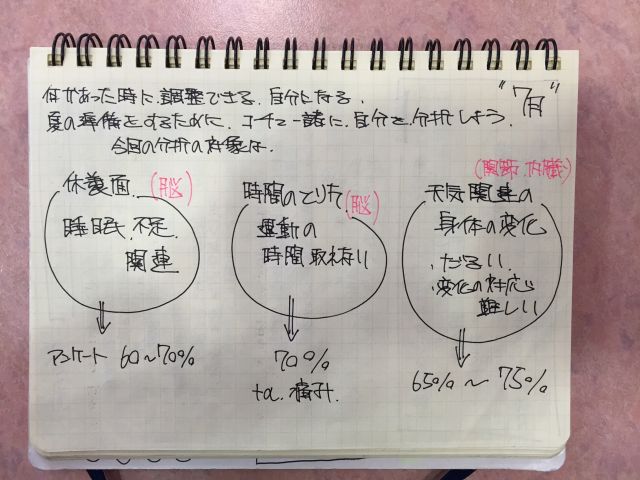 "7月"
何かあった時に、調整できる、自分になる。
夏の準備をするために、コーチと一緒に、自分を、分析しよう。
今回の分析の対象は、
休養面 (脳)
睡眠、不足、
関連
アンケート 60〜70%
時間のとり方 (脳)
運動の
時間取れない
70%
(関節、内臓)
天気関連の
身体の変化
、だるい、
、変化の対応
難しい
65%〜75%